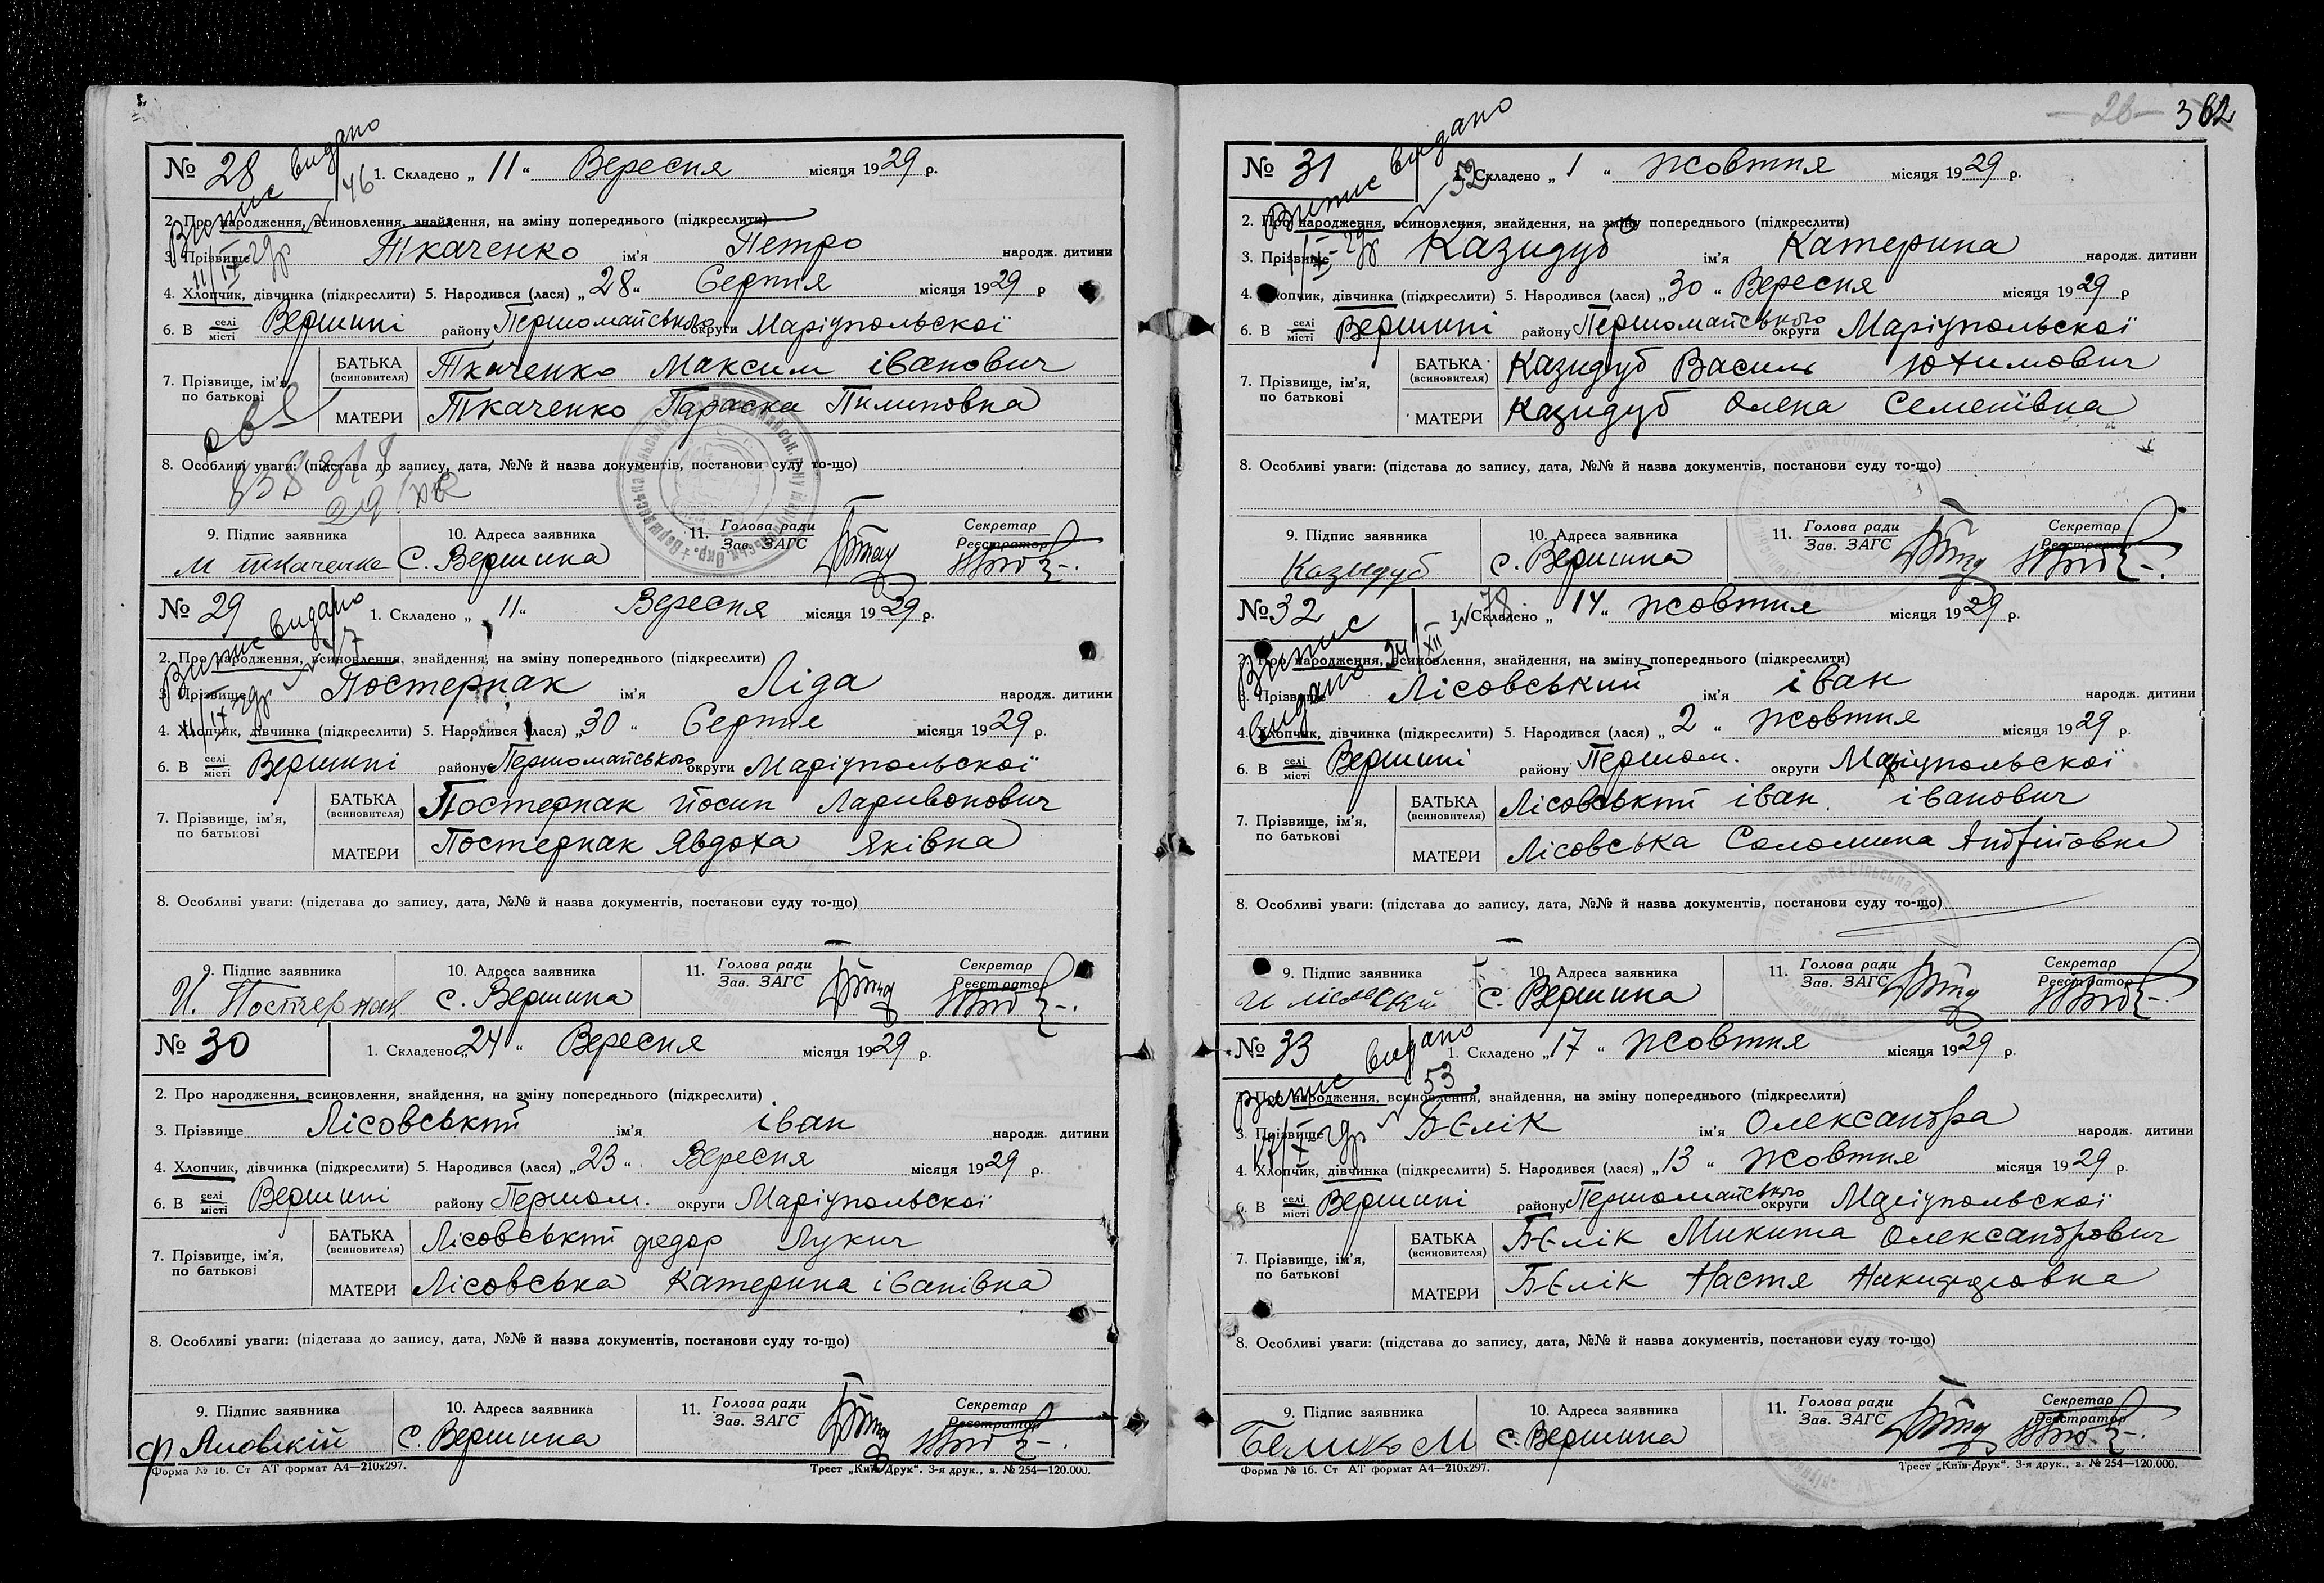 № 28 Випис видано 46 1. Складено „ 11 “ Вересня місяця 1929 р.
2. Про народження, всиновлення, знайдення, на зміну попереднього (підкреслити)
3. Прізвище Ткаченко ім’я Петро народж. дитини
4. Хлопчик, дівчинка (підкреслити) 5. Народився (лася) „ 28 “ Серпня місяця 1929 р
6. В селі місті Вершині району Першомайського округи Маріупольскої
7. Прізвище, ім’я, по батькові
БАТЬКА (всиновителя) Ткаченко Максим іванович
МАТЕРИ Ткаченко Параска Пилиповна
8. Особливі уваги: (підстава до запису, дата, №№ й назва документів, постанови суду то-що)
9. Підпис заявника 10. Адреса заявника 11. Голова ради Зав. ЗАГС Секретар Реєстратор
М Ткаченко С. Вершина
№ 29 Випис видано 47 1. Складено „ 11 “ Вересня місяця 1929 р.
2. Про народження, всиновлення, знайдення, на зміну попереднього (підкреслити)
3. Прізвище Постернак ім’я Ліда народж. дитини
4. Хлопчик, дівчинка (підкреслити) 5. Народився (лася) „ 30 “ Серпня місяця 1929 р.
6. В селі місті Вершині району Першомайського округи Маріупольскої
7. Прізвище, ім’я, по батькові
БАТЬКА (всиновителя) Постернак Йосип Ларивонович
МАТЕРИ Постернак Явдоха Яківна
8. Особливі уваги: (підстава до запису, дата, №№ й назва документів, постанови суду то-що)
9. Підпис заявника 10. Адреса заявника 11. Голова ради Зав. ЗАГС Секретар Реєстратор
И. Постернак с. Вершина
№ 30 1. Складено „ 24 “ Вересня місяця 1929 р.
2. Про народження, всиновлення, знайдення, на зміну попереднього (підкреслити)
3. Прізвище Лісовський ім’я іван народж. дитини
4. Хлопчик, дівчинка (підкреслити) 5. Народився (лася) „ 23 “ Вересня місяця 1929 р.
6. В селі місті Вершині району Першом. округи Маріупольскої
7. Прізвище, ім’я, по батькові
БАТЬКА (всиновителя) Лісовський федор Лукич
МАТЕРИ Лісовська Катерина іванівна
8. Особливі уваги: (підстава до запису, дата, №№ й назва документів, постанови суду то-що)
9. Підпис заявника 10. Адреса заявника 11. Голова ради Зав. ЗАГС Секретар Реєстратор
с. Вершина
Форма № 16. Ст АТ формат А4—210х297. Трест „Київ-Друк“. 3-я друк., з. № 254—120.000.
28 362
№ 31 Випис видано 52 1. Складено „ 1 “ Жовтня місяця 1929 р.
2. Про народження, всиновлення, знайдення, на зміну попереднього (підкреслити)
3. Прізвище Казидуб ім’я Катерина народж. дитини
4. Хлопчик, дівчинка (підкреслити) 5. Народився (лася) „ 30 “ Вересня місяця 1929 р
6. В селі місті Вершині району Першомайського округи Маріупольскої
7. Прізвище, ім’я, по батькові
БАТЬКА (всиновителя) Казидуб Василь Юхимович
МАТЕРИ Казидуб Олена Семенівна
8. Особливі уваги: (підстава до запису, дата, №№ й назва документів, постанови суду то-що)
9. Підпис заявника 10. Адреса заявника 11. Голова ради Зав. ЗАГС Секретар Реєстратор
Казыдуб с. Вершина
№ 32 Випис видано 24/XII № 78 1. Складено „ 14 “ Жовтня місяця 1929 р.
2. Про народження, всиновлення, знайдення, на зміну попереднього (підкреслити)
3. Прізвище Лісовський ім’я іван народж. дитини
4. Хлопчик, дівчинка (підкреслити) 5. Народився (лася) „ 2 “ Жовтня місяця 1929 р.
6. В селі місті Вершині району Першом. округи Маріупольскої
7. Прізвище, ім’я, по батькові
БАТЬКА (всиновителя) Лісовський іван іванович
МАТЕРИ Лісовська Соломина Андрійовна
8. Особливі уваги: (підстава до запису, дата, №№ й назва документів, постанови суду то-що)
9. Підпис заявника 10. Адреса заявника 11. Голова ради Зав. ЗАГС Секретар Реєстратор
с. Вершина
№ 33 Випис видано № 53 1. Складено „ 17 “ Жовтня місяця 1929 р.
2. Про народження, всиновлення, знайдення, на зміну попереднього (підкреслити)
3. Прізвище Бєлік ім’я Олександра народж. дитини
4. Хлопчик, дівчинка (підкреслити) 5. Народився (лася) „ 13 “ Жовтня місяця 1929 р.
6. В селі місті Вершині району Першомайського округи Маріупольскої
7. Прізвище, ім’я, по батькові
БАТЬКА (всиновителя) Бєлік Микита Олександрович
МАТЕРИ Бєлік Настя
8. Особливі уваги: (підстава до запису, дата, №№ й назва документів, постанови суду то-що)
9. Підпис заявника 10. Адреса заявника 11. Голова ради Зав. ЗАГС Секретар Реєстратор
с. Вершина
Форма № 16. Ст АТ формат А4—210х297. Трест „Київ-Друк“. 3-я друк., з. № 254—120.000.